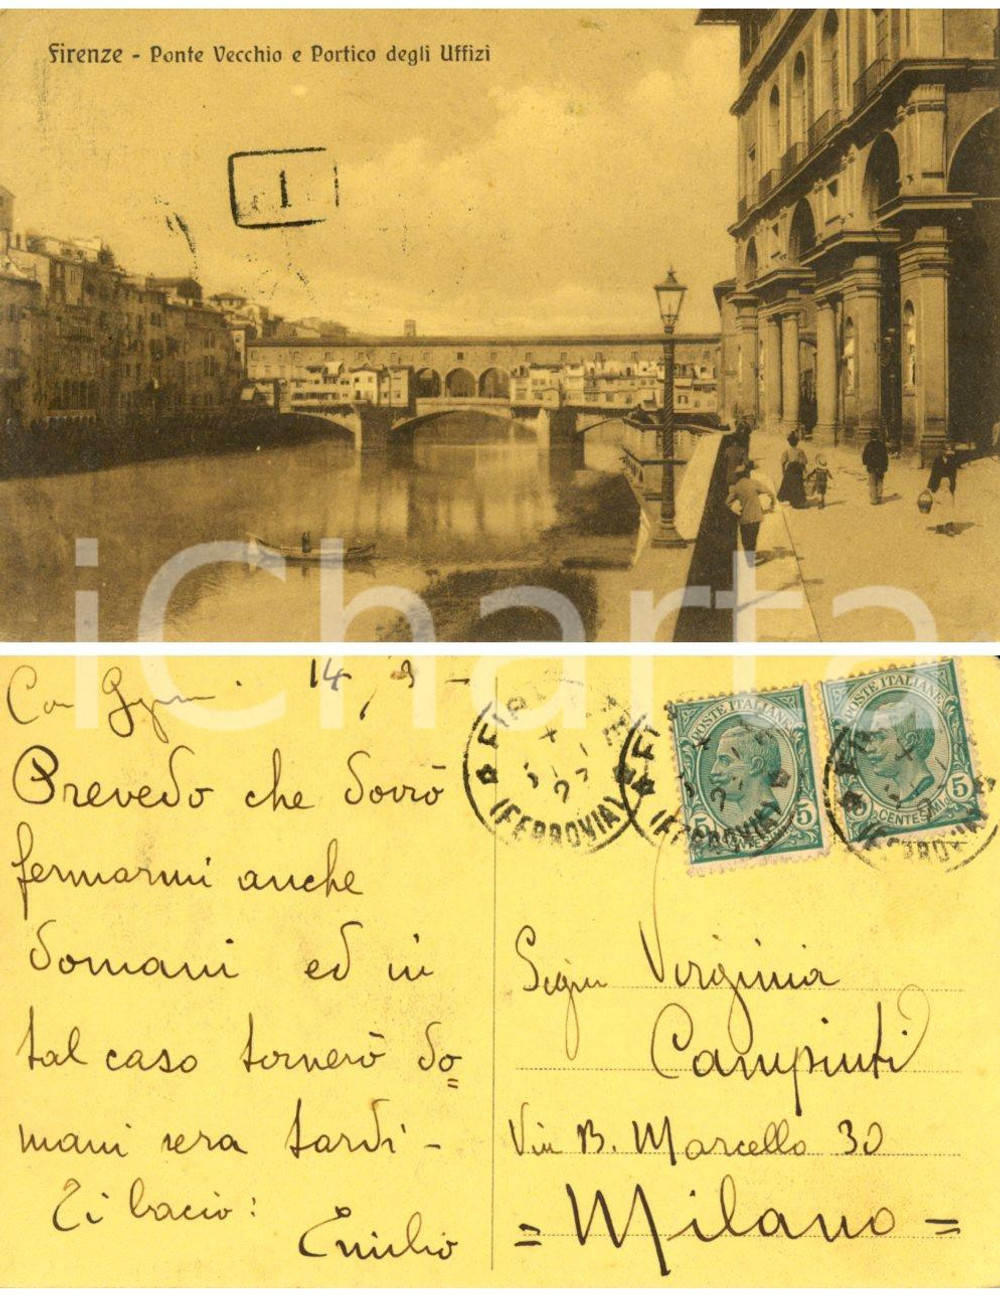 Firenze - Ponte Vecchio e Portico degli Uffizi
1
iCharta
14 / 3 -
Prevedo che dovrò
fermarmi anche
domani ed in
tal caso tornerò do=
mani sera tardi -
Ti bacio:
Emilio
(FERROVIA)
(FERROVIA)
(FERROVIA)
POSTE ITALIANE
5 CENTESIMI 5
POSTE ITALIANE
5 CENTESIMI 5
Virginia
Campinti
Via B. Marcello 30
= Milano =